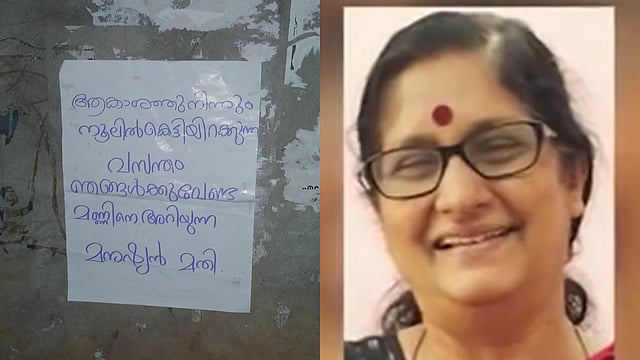 ആകാശത്തുനിന്നും
നൂലിൽകെട്ടിയിറക്കുന്ന
വസന്തം
ഞങ്ങൾക്കുവേണ്ട
മണ്ണിനെ അറിയുന്ന
മനുഷ്യൻ മതി.